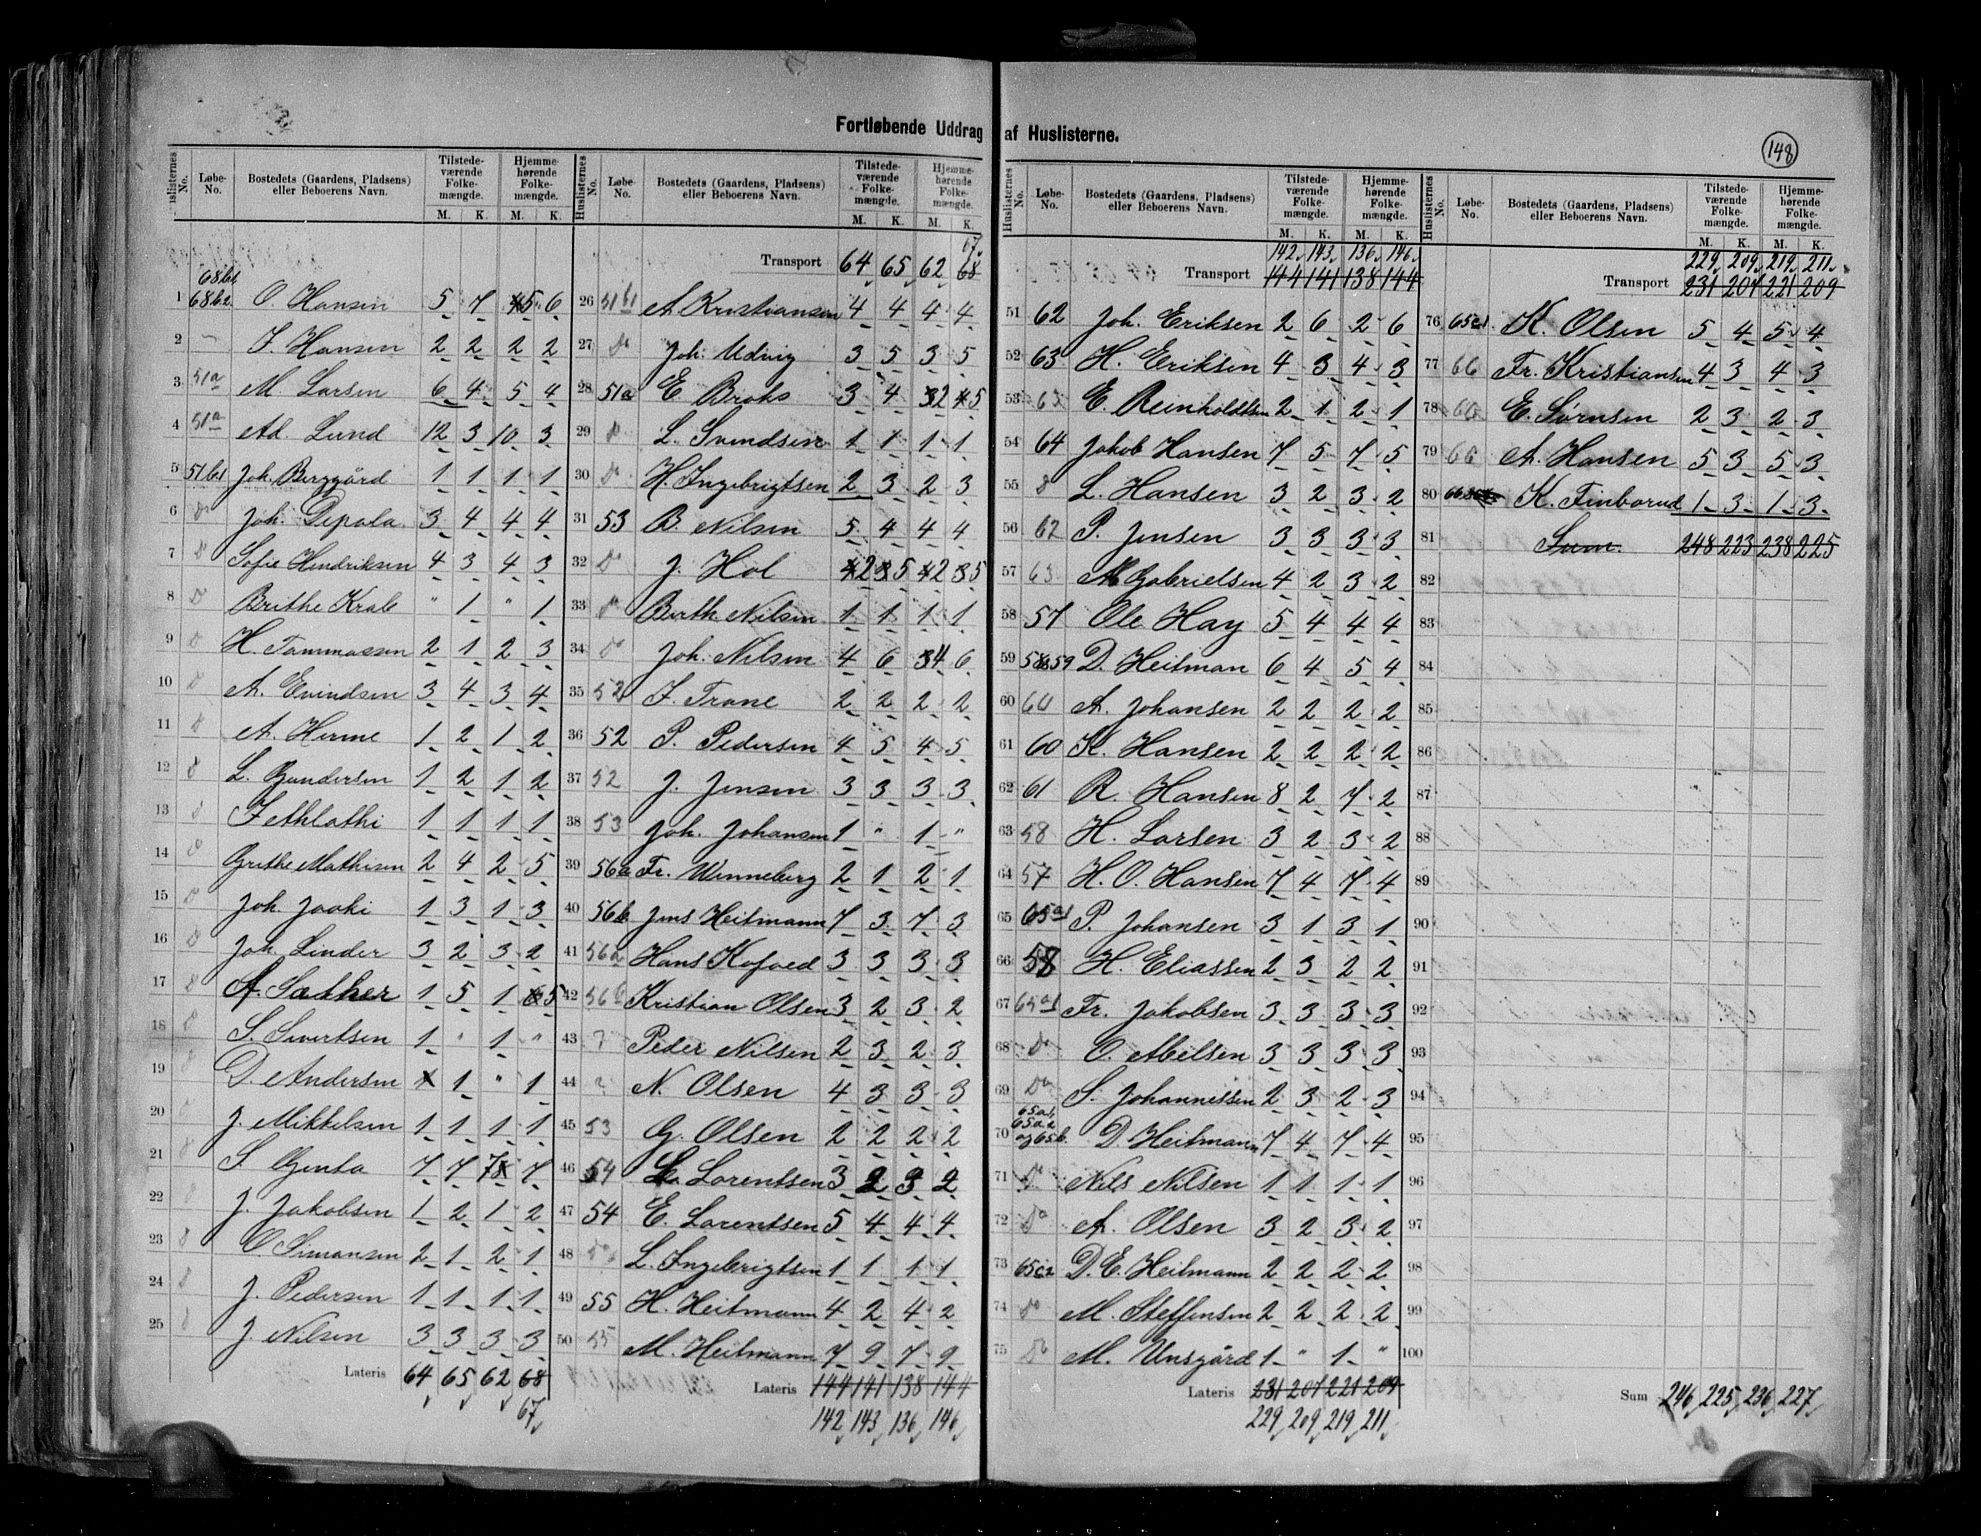 Fortløbende Uddrag af Huslisterne.
148
Huslisternes No. Løbe-No. Bostedets (Gaardens, Pladsens) eller Beboerens Navn. Tilstedeværende Folkemængde. M. K. Hjemmehørende Folkemængde. M. K.
68b1
1 68b2 O. Hansen 5 7 5 6
2 - J. Hansen 2 2 2 2
3 51a M. Larsen 6 4 5 4
4 51a Ad. Lund 12 3 10 3
5 51b1 Joh. Berggård 1 1 1 1
6 do Joh. Depala 3 4 4 4
7 do Sofie Hendriksen 4 3 4 3
8 do Brithe Krab " 1 " 1
9 do H. Tommassen 2 1 2 3
10 do A. Evindsen 3 4 3 4
11 do A. Herme 1 2 1 2
12 do L. Gundersen 1 2 1 2
13 do 1 1 1 1
14 do Grethe Mathisen 2 4 2 5
15 do Joh. Jaaki 1 3 1 3
16 do Joh. Linder 3 2 3 2
17 do A. Sather 1 5 1 5
18 do S. Sivertsen 1 " 1 "
19 do D. Andersen 1 " 1
20 do J. Mikkelsen 1 1 1 1
21 do S. Genta 7 7 7 7
22 do J. Jakobsen 1 2 1 2
23 do O Simonsen 2 1 2 1
24 do J. Pedersen 1 1 1 1
25 do J. Nilsen 3 3 3 3
Lateris 64 65 62 68
67
Huslisternes No. Løbe-No. Bostedets (Gaardens, Pladsens) eller Beboerens Navn. Tilstedeværende Folkemængde. M. K. Hjemmehørende Folkemængde. M. K.
67
Transport 64 65 62 68
26 51b1 A. Kristiansen 4 4 4 4
27 do Joh. Udvig 3 5 3 5
28 51a E Broks 3 4 2 5
29 do L. Svendsen 1 1 1 1
30 do H. Ingebrigtsen 2 3 2 3
31 53 B. Nilsen 5 4 4 4
32 do J. Hol 2 5 2 5
33 do Berth. Nilsen 1 1 1 1
34 do Joh. Nilsen 4 6 4 6
35 52 J. Trane 2 2 2 2
36 52 P. Pedersen 4 5 4 5
37 52 J. Jensen 3 3 3 3
38 53 Joh. Johansen 1 " 1 "
39 56a Fr. Winneberg 2 1 2 1
40 56b Jens Heitmann 7 3 7 3
41 56a Hans Kofoed 3 3 3 3
42 56b Kristian Olsen 3 2 3 2
43 Peder Nilsen 2 3 2 3
44 N. Olsen 4 3 3 3
45 53 G. Olsen 2 2 2 2
46 54 L. Lorentsen 3 2 3 2
47 54 E. Lorentsen 5 4 4 4
48 do L. Ingebrigtsen 1 1 1 1
49 55 H. Heitmann 4 2 4 2
50 55 M. Heitmann 7 9 7 9
Lateris 144 141 138 144
142 143 136 146
Huslisternes No. Løbe-No. Bostedets (Gaardens, Pladsens) eller Beboerens Navn. Tilstedeværende Folkemængde. M. K. Hjemmehørende Folkemængde. M. K.
142 143 136 146
Transport 144 141 138 144
51 62 Joh. Eriksen 2 6 2 6
52 63 H. Eriksen 4 3 4 3
53 63 E. Reinholdtsen 2 1 2 1
54 64 Jakob Hansen 7 5 7 5
55 do L. Hansen 3 2 3 2
56 62 P. Jensen 3 3 3 3
57 63 A. Gabrielsen 4 2 3 2
58 57 Ole Hay 5 4 4 4
59 58 59 D. Heitman 6 4 5 4
60 60 A. Johansen 2 2 2 2
61 60 K. Hansen 2 2 2 2
62 61 R. Hansen 8 2 7 2
63 58 H. Larsen 3 2 3 2
64 57 H. O. Hansen 7 4 7 4
65 65a1 P. Johansen 3 1 3 1
66 58 H. Eliassen 2 3 2 2
67 65a1 Fr. Jakobsen 3 3 3 3
68 do O. Abelsen 3 3 3 3
69 do S. Johannessen 2 3 2 3
65a1,
65a2
70 og 65b. D. Heitmann 7 4 7 4
71 do Nils Nilsen 1 1 1 1
72 do A. Olsen 3 2 3 2
73 65c2 D. E. Heitmann 2 2 2 2
74 do M. Steffensen 2 2 2 2
75 do M. Unsgård 1 " 1 "
Lateris 231 207 221 209
229 209 219 211
Huslisternes No. Løbe-No. Bostedets (Gaardens, Pladsens) eller Beboerens Navn. Tilstedeværende Folkemængde. M. K. Hjemmehørende Folkemængde. M. K.
229 209 219 211
Transport 231 207 221 209
76 65c1 K. Olsen 5 4 5 4
77 66 Fr. Kristiansen 4 3 4 3
78 66 E. Sørnsen 2 3 2 3
79 66 A. Hansen 5 3 5 3
80 K. Finborud 1 3 1 3
81 Sum. 248 223 238 225
82
83
84
85
86
87
88
89
90
91
92
93
94
95
96
97
98
99
100
Sum 246 225 236 227